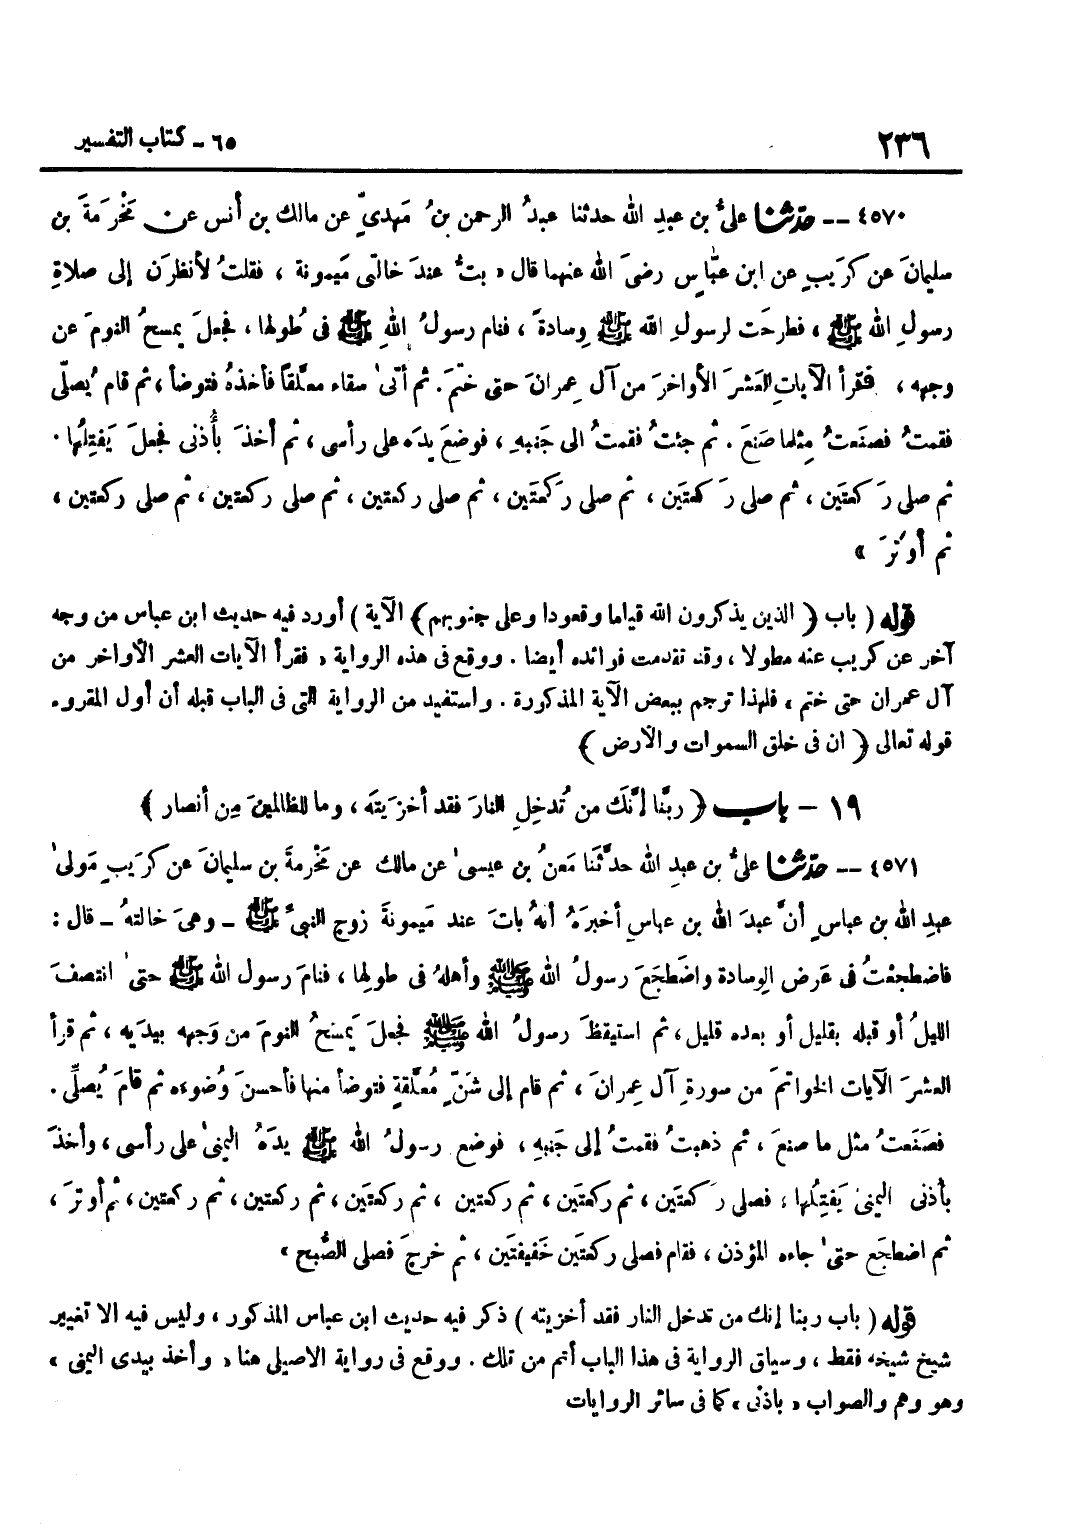 ٢٣٦ ٦٥ - كتاب التفسير
٤٥٧٠ -- حدّثنا علىُّ بن عبدِ الله حدثنا عبدُ الرحمن بنُ مَهدىّ عن مالك بن أنس عن مَخْرَمةَ بن
سليمانَ عن كرَيبٍ عن ابن عبّاس رضىَ الله عنهما قال « بتُّ عندَ خالتى مَيمونة ، فقلتُ لأنظرَن إلى صلاةِ
رسولِ الله ﷺ ، فطرِحَت لرسولِ الله ﷺ وِسادةٌ ، فنام رسولُ اللهِ ﷺ فى طُولها ، فجعلَ يمسحُ النومَ عن
وجهه ، فقرأ الآياتِ العَشرَ الأواخرَ من آل عِمرانَ حتى ختَمَ . ثم أتىٰ سقاء معلَّقاً فأخذهُ فتوضأ ، ثم قام يُصلّى
فقمتُ فصنَعتُ مِثلما صَنَعَ . ثم جئتُ فقمتُ الى جَنبهِ ، فوضعَ يدَه على رأسى ، ثم أخذَ بأُذنى فجعلَ يَفتِلُها .
ثم صلى رَكعتَين ، ثم صلى رَكعتَين ، ثم صلى رَكعتَين ، ثم صلى ركعتين ، ثم صلى ركعتين ، ثم صلى ركعتين ،
ثم أوْترَ »
قوله ( باب ﴿ الذين يذكرون الله قياما وقعودا وعلى جنوبهم ﴾ الآية ) أورد فيه حديث ابن عباس من وجه
آخر عن كريب عنه مطولا ، وقد تقدمت فوائده أيضا . ووقع فى هذه الرواية « فقرأ الآيات العشر الأواخر من
آل عمران حتى ختم » فلهذا ترجم ببعض الآية المذكورة . واستفيد من الرواية التى فى الباب قبله أن أول المقروء
قوله تعالى ﴿ ان فى خلق السموات والأرض ﴾
١٩ - باب ﴿ ربَّنا إنَّكَ من تُدخِلِ النارَ فقد أخزَيتَه ، وما للظالمينَ مِن أنصار ﴾
٤٥٧١ -- حدّثنا علىُّ بن عبدِ الله حدَّثَنا مَعنُ بن عيسىٰ عن مالك عن مَخْرمةَ بن سليمانَ عن كرَيبٍ مَولىٰ
عبدِ الله بن عباسٍ أنَّ عبدَ الله بن عباسٍ أخبرَهُ أنهُ باتَ عند مَيمونةَ زوجِ النبىِّ ﷺ - وهىَ خالتهُ - قال :
فاضطجعْتُ فى عَرض الوِسادة واضَطجَعَ رسولُ الله ﷺ وأهلهُ فى طولها ، فنامَ رسول الله ﷺ حتىٰ انتصفَ
الليلُ أو قبله بقليل أو بعده قليل ، ثم استيقظَ رسولُ الله ﷺ فجعلَ يَمسَحُ النومَ من وَجهه بيدَيه ، ثم قرأ
العشرَ الآيات الخواتمَ من سورةِ آل عِمرانَ ، ثم قام إلى شَنٍّ مُعلَّقةٍ فتوضأ منها فأحسنَ وُضوءه ثم قامَ يُصلِّى .
فصَنَعتُ مثل ما صنعَ ، ثم ذهبتُ فقمتُ إلى جَنبهِ ، فوضع رسولُ الله ﷺ يدَهُ اليمنىٰ على رأسى ، وأخذَ
بأذنى اليمنىٰ يَفتِلُها ، فصلى رَكعتَين ، ثم ركعتَين ، ثم ركعتين ، ثم ركعتَين ، ثم ركعتين ، ثم ركعتين ، ثم أوترَ ،
ثم اضطجَع حتىٰ جاءه المؤذن ، فقام فصلى ركعتَين خَفيفتَين ، ثم خرجَ فصلى الصُّبح »
قوله ( باب ربنا إنك من تدخل النار فقد أخزيته ) ذكر فيه حديث ابن عباس المذكور ، وليس فيه الا تغيير
شيخ شيخه فقط ، وسياق الرواية فى هذا الباب أتم من تلك . ووقع فى رواية الاصيلى هنا « وأخذ بيدى اليمنى »
وهو وهم والصواب « باذنى » كما فى سائر الروايات